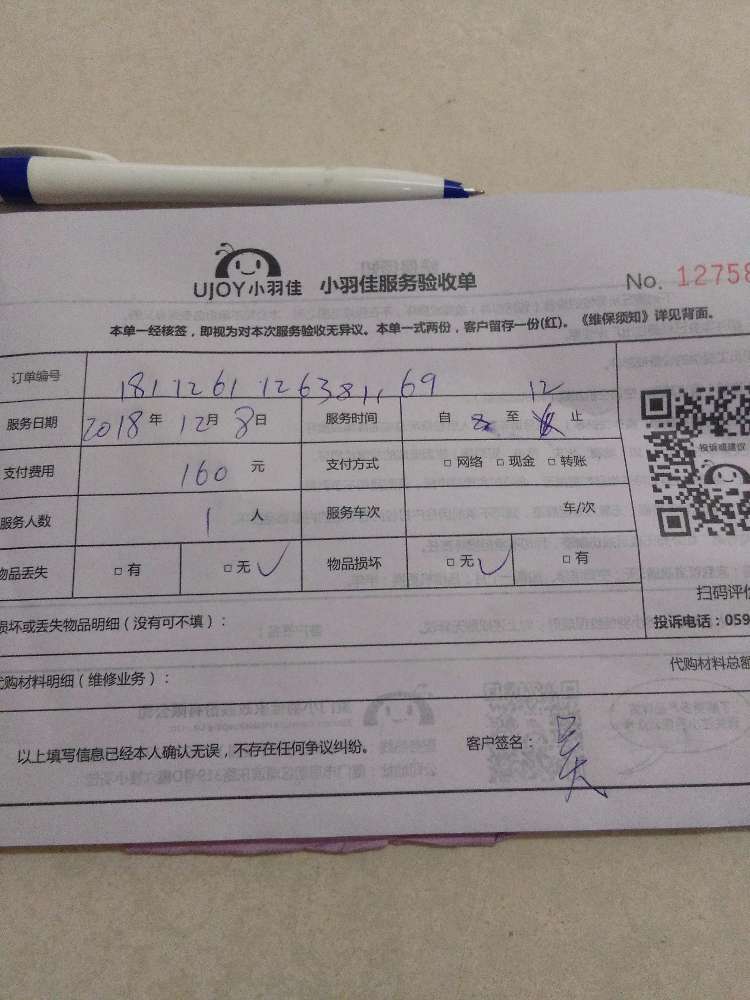 UJOY小羽佳 小羽佳服务验收单 No. 12758
本单一经核签，即视为对本次服务验收无异议。本单一式两份，客户留存一份(红)。《维保须知》详见背面。
订单编号 181126112638116９
服务日期 2018年 12月 8日 服务时间 自 8 至 12 止
投诉或建议
支付费用 160 元 支付方式 □网络 □现金 □转账
服务人数 1 人 服务车次 车/次
物品丢失 □有 □无✓ 物品损坏 □无✓ □有
扫码评价
损坏或丢失物品明细（没有可不填）： 投诉电话：059
代购材料明细（维修业务）： 代购材料总额
以上填写信息已经本人确认无误，不存在任何争议纠纷。 客户签名：吴